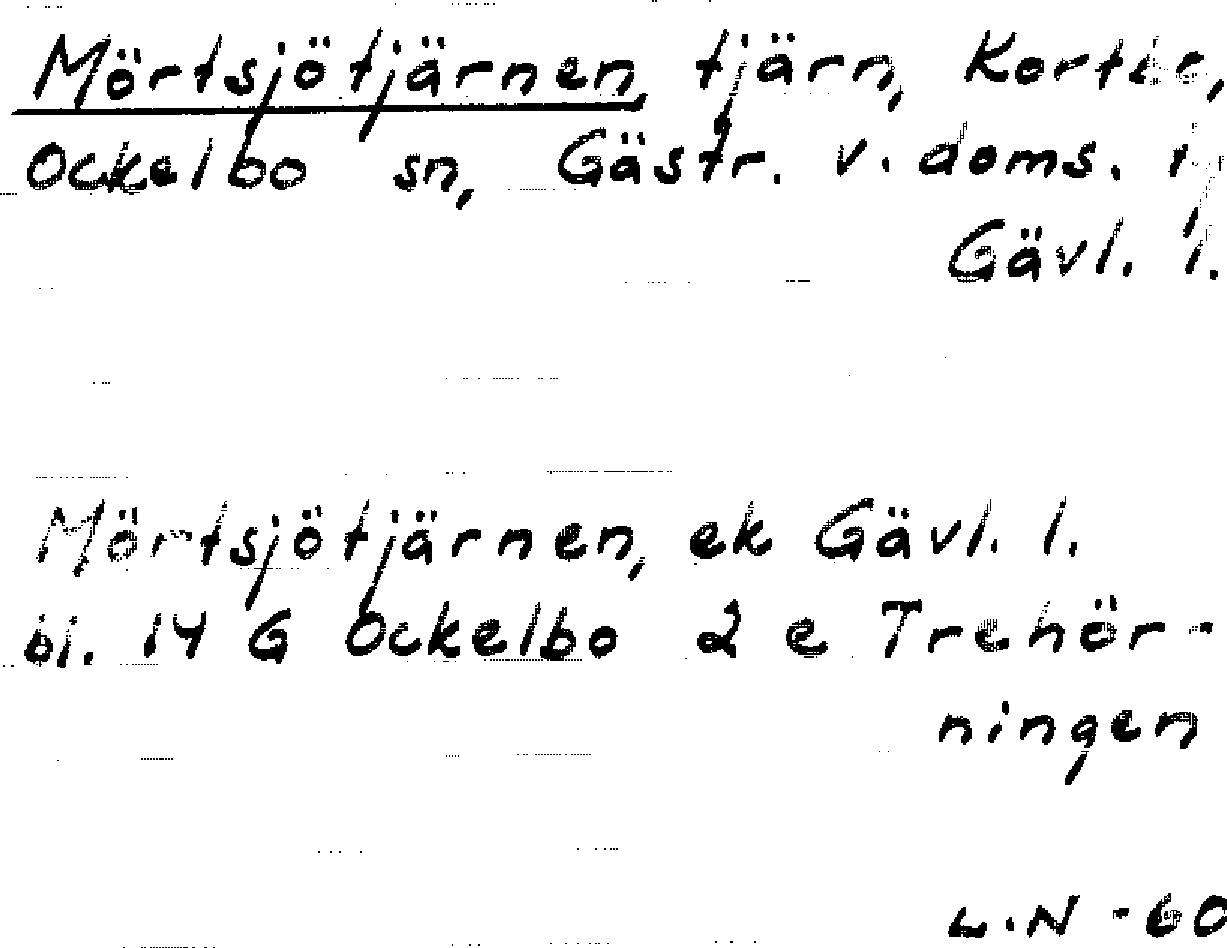 Mörtsjötjärnen, tjärn, Kortis,
Ockelbo sn, Gästr. v. doms. l,
Gävl. l.
Mörtsjötjärnen, ek Gävl. l.
bl. 14 G Ockelbo 2 e Trehör-
ningen
L.N -60